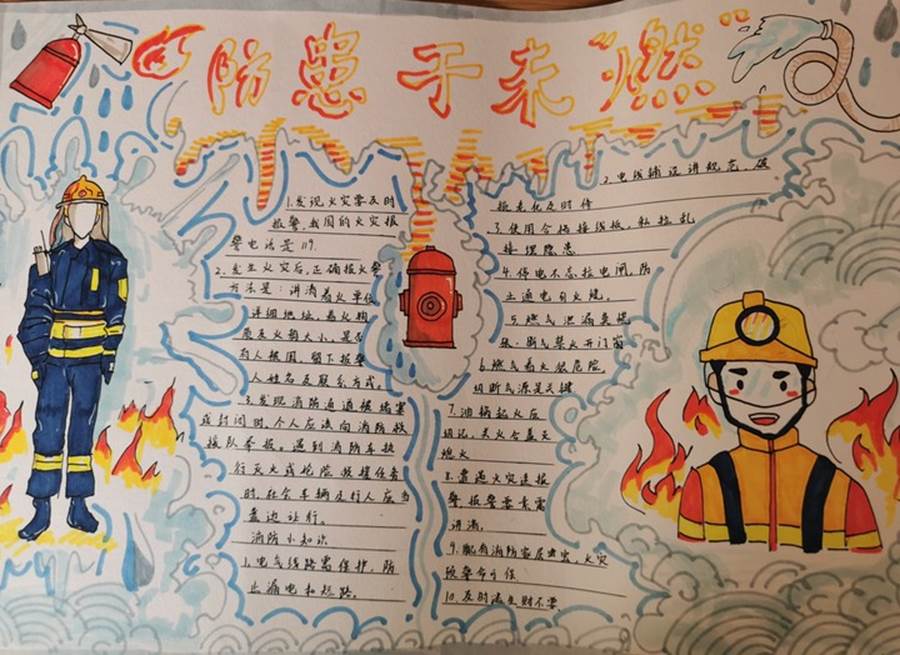 防患于未“燃”
1.发现火灾要及时
报警,我国的火灾报
警电话是119.
2.发生火灾后,正确报火警
方法是:讲清着火单位
详细地址、着火物
质及火势大小,是否
有人被困,留下报警
人姓名及联系方式。
3.发现消防通道被堵塞
或封闭时,个人应该向消防救
援队举报。遇到消防车执
行灭火或抢险救援任务
时,社会车辆及行人应当
靠边让行。
消防小知识
1.电气线路需保护,防
止漏电和短路。
2.电线铺设讲规范,破
损老化及时修
3.使用合格接线板,私拉乱
接埋隐患
4.停电不忘拉电闸,防
止通电引火烧。
5.燃气泄漏莫慌
张,断气禁火开门窗
6.燃气着火很危险,
切断气源是关键
7.油锅起火应
切记,关火合盖灭
熄火
8.遭遇火灾速报
警,报警要素需
讲清,
9.配有消防家居 火灾
预警命可保
10.及时逃生财不要,